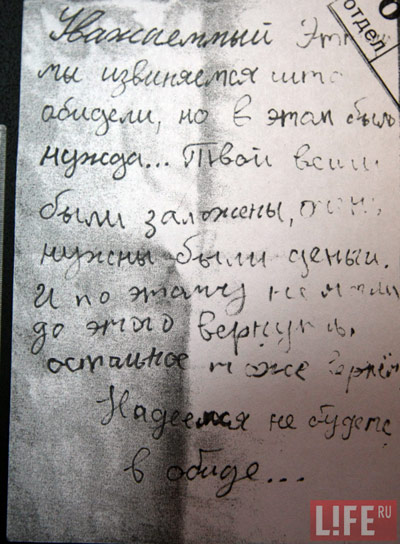 отдел
Уважаемный Эт
мы извиняемся што
абидели, но в этам было
нужда... Твои вещи
были заложены,
нужны были деньги.
И по этаму не могли
до этого вернуть,
остальное тоже вернём
Надеемся не будете
в обиде...
L!FE RU